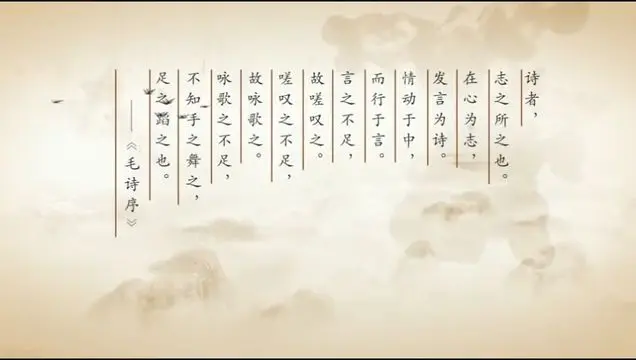 诗者，
志之所之也。
在心为志，
发言为诗。
情动于中，
而行于言。
言之不足，
故嗟叹之。
嗟叹之不足，
故咏歌之。
咏歌之不足，
不知手之舞之，
足之蹈之也。
——《毛诗序》